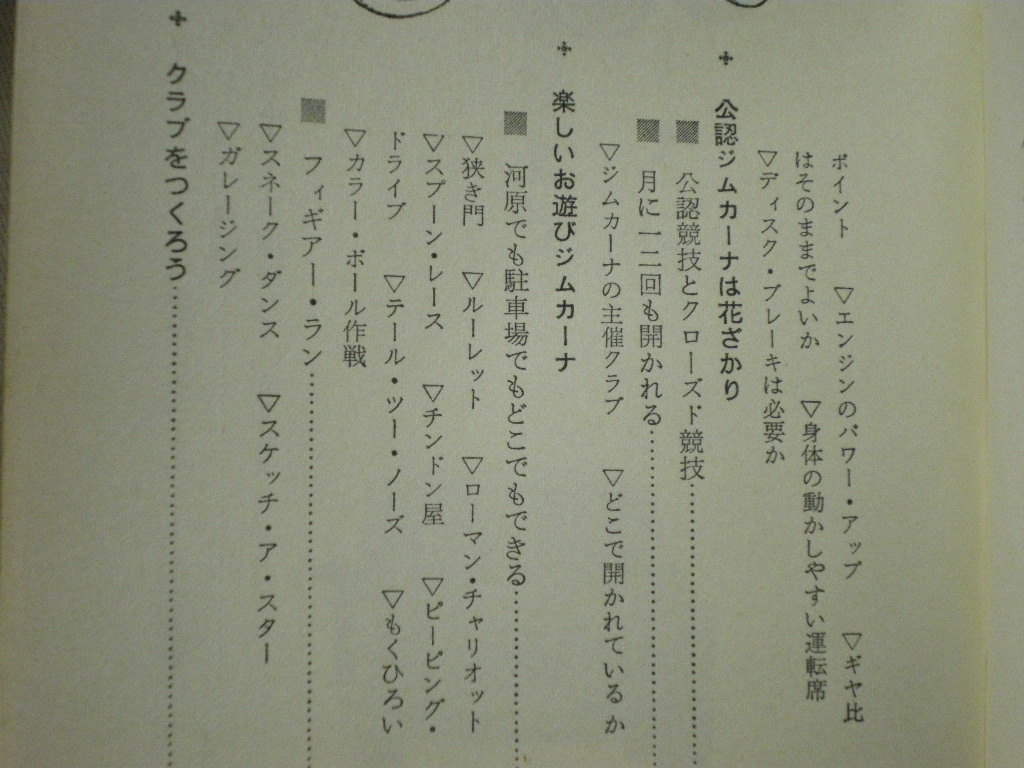 ポイント ▽エンジンのパワー・アップ ▽ギヤ比
はそのままでよいか ▽身体の動かしやすい運転席
▽ディスク・ブレーキは必要か
✢ 公認ジムカーナは花ざかり
■ 公認競技とクローズド競技……………………
■ 月に一二回も開かれる……………………
▽ジムカーナの主催クラブ ▽どこで開かれているか
✢ 楽しいお遊びジムカーナ
■ 河原でも駐車場でもどこでもできる……………………
▽狭き門 ▽ルーレット ▽ローマン・チャリオット
▽スプーン・レース ▽チンドン屋 ▽ピーピング・
ドライブ ▽テール・ツー・ノーズ ▽もくひろい
▽カラー・ボール作戦
■ フィギアー・ラン……………………
▽スネーク・ダンス ▽スケッチ・ア・スター
▽ガレージング
✢ クラブをつくろう……………………